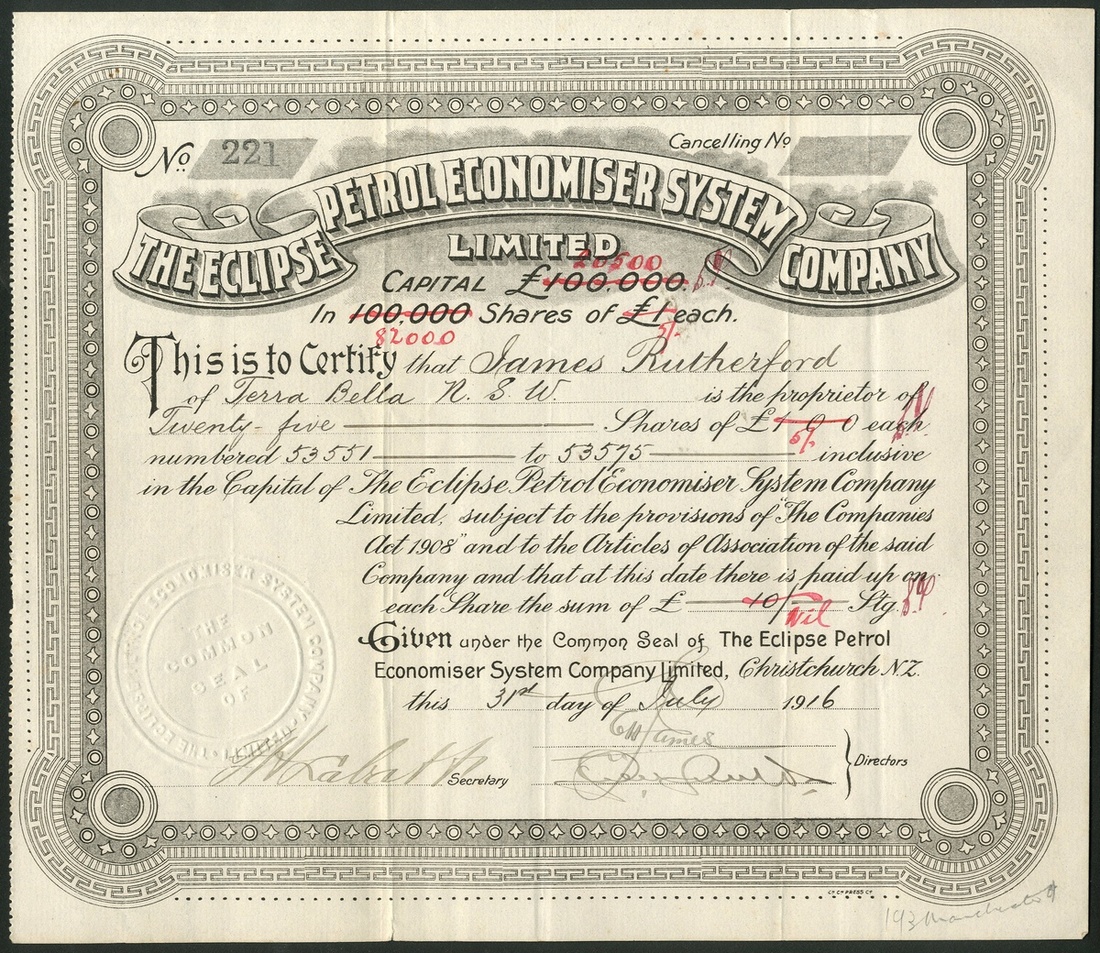 No. 221
Cancelling No
THE ECLIPSE PETROL ECONOMISER SYSTEM COMPANY
LIMITED
20500
CAPITAL £100,000.
In 100,000 Shares of £1 each.
82000 5/-
This is to Certify that James Rutherford
of Terra Bella N. S. W. is the proprietor of
Twenty-five Shares of £1 0 0 each
5/-
numbered 53551 to 53575 inclusive
in the Capital of The Eclipse Petrol Economiser System Company
Limited, subject to the provisions of "The Companies
Act 1908" and to the Articles of Association of the said
Company and that at this date there is paid up on
each Share the sum of £ 10/- Stg.
Nil
Given under the Common Seal of The Eclipse Petrol
Economiser System Company Limited, Christchurch N.Z.
this 31st day of July 1916
THE ECLIPSE PETROL ECONOMISER SYSTEM COMPANY LIMITED
THE
COMMON
SEAL
OF
James
Secretary
Directors
Ch. Ch. PRESS Co.
193 Manchester